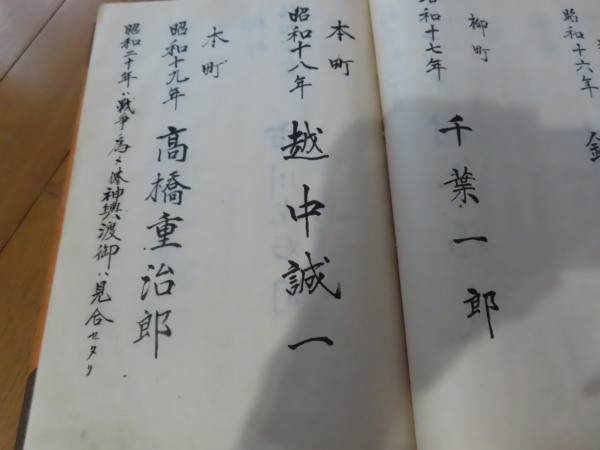 昭和十六年
柳町
昭和十七年
千葉一郎
本町
昭和十八年
越中誠一
本町
昭和十九年
高橋重治郎
昭和二十年ハ戦争ノ為メ神輿渡御ハ見合セタリ